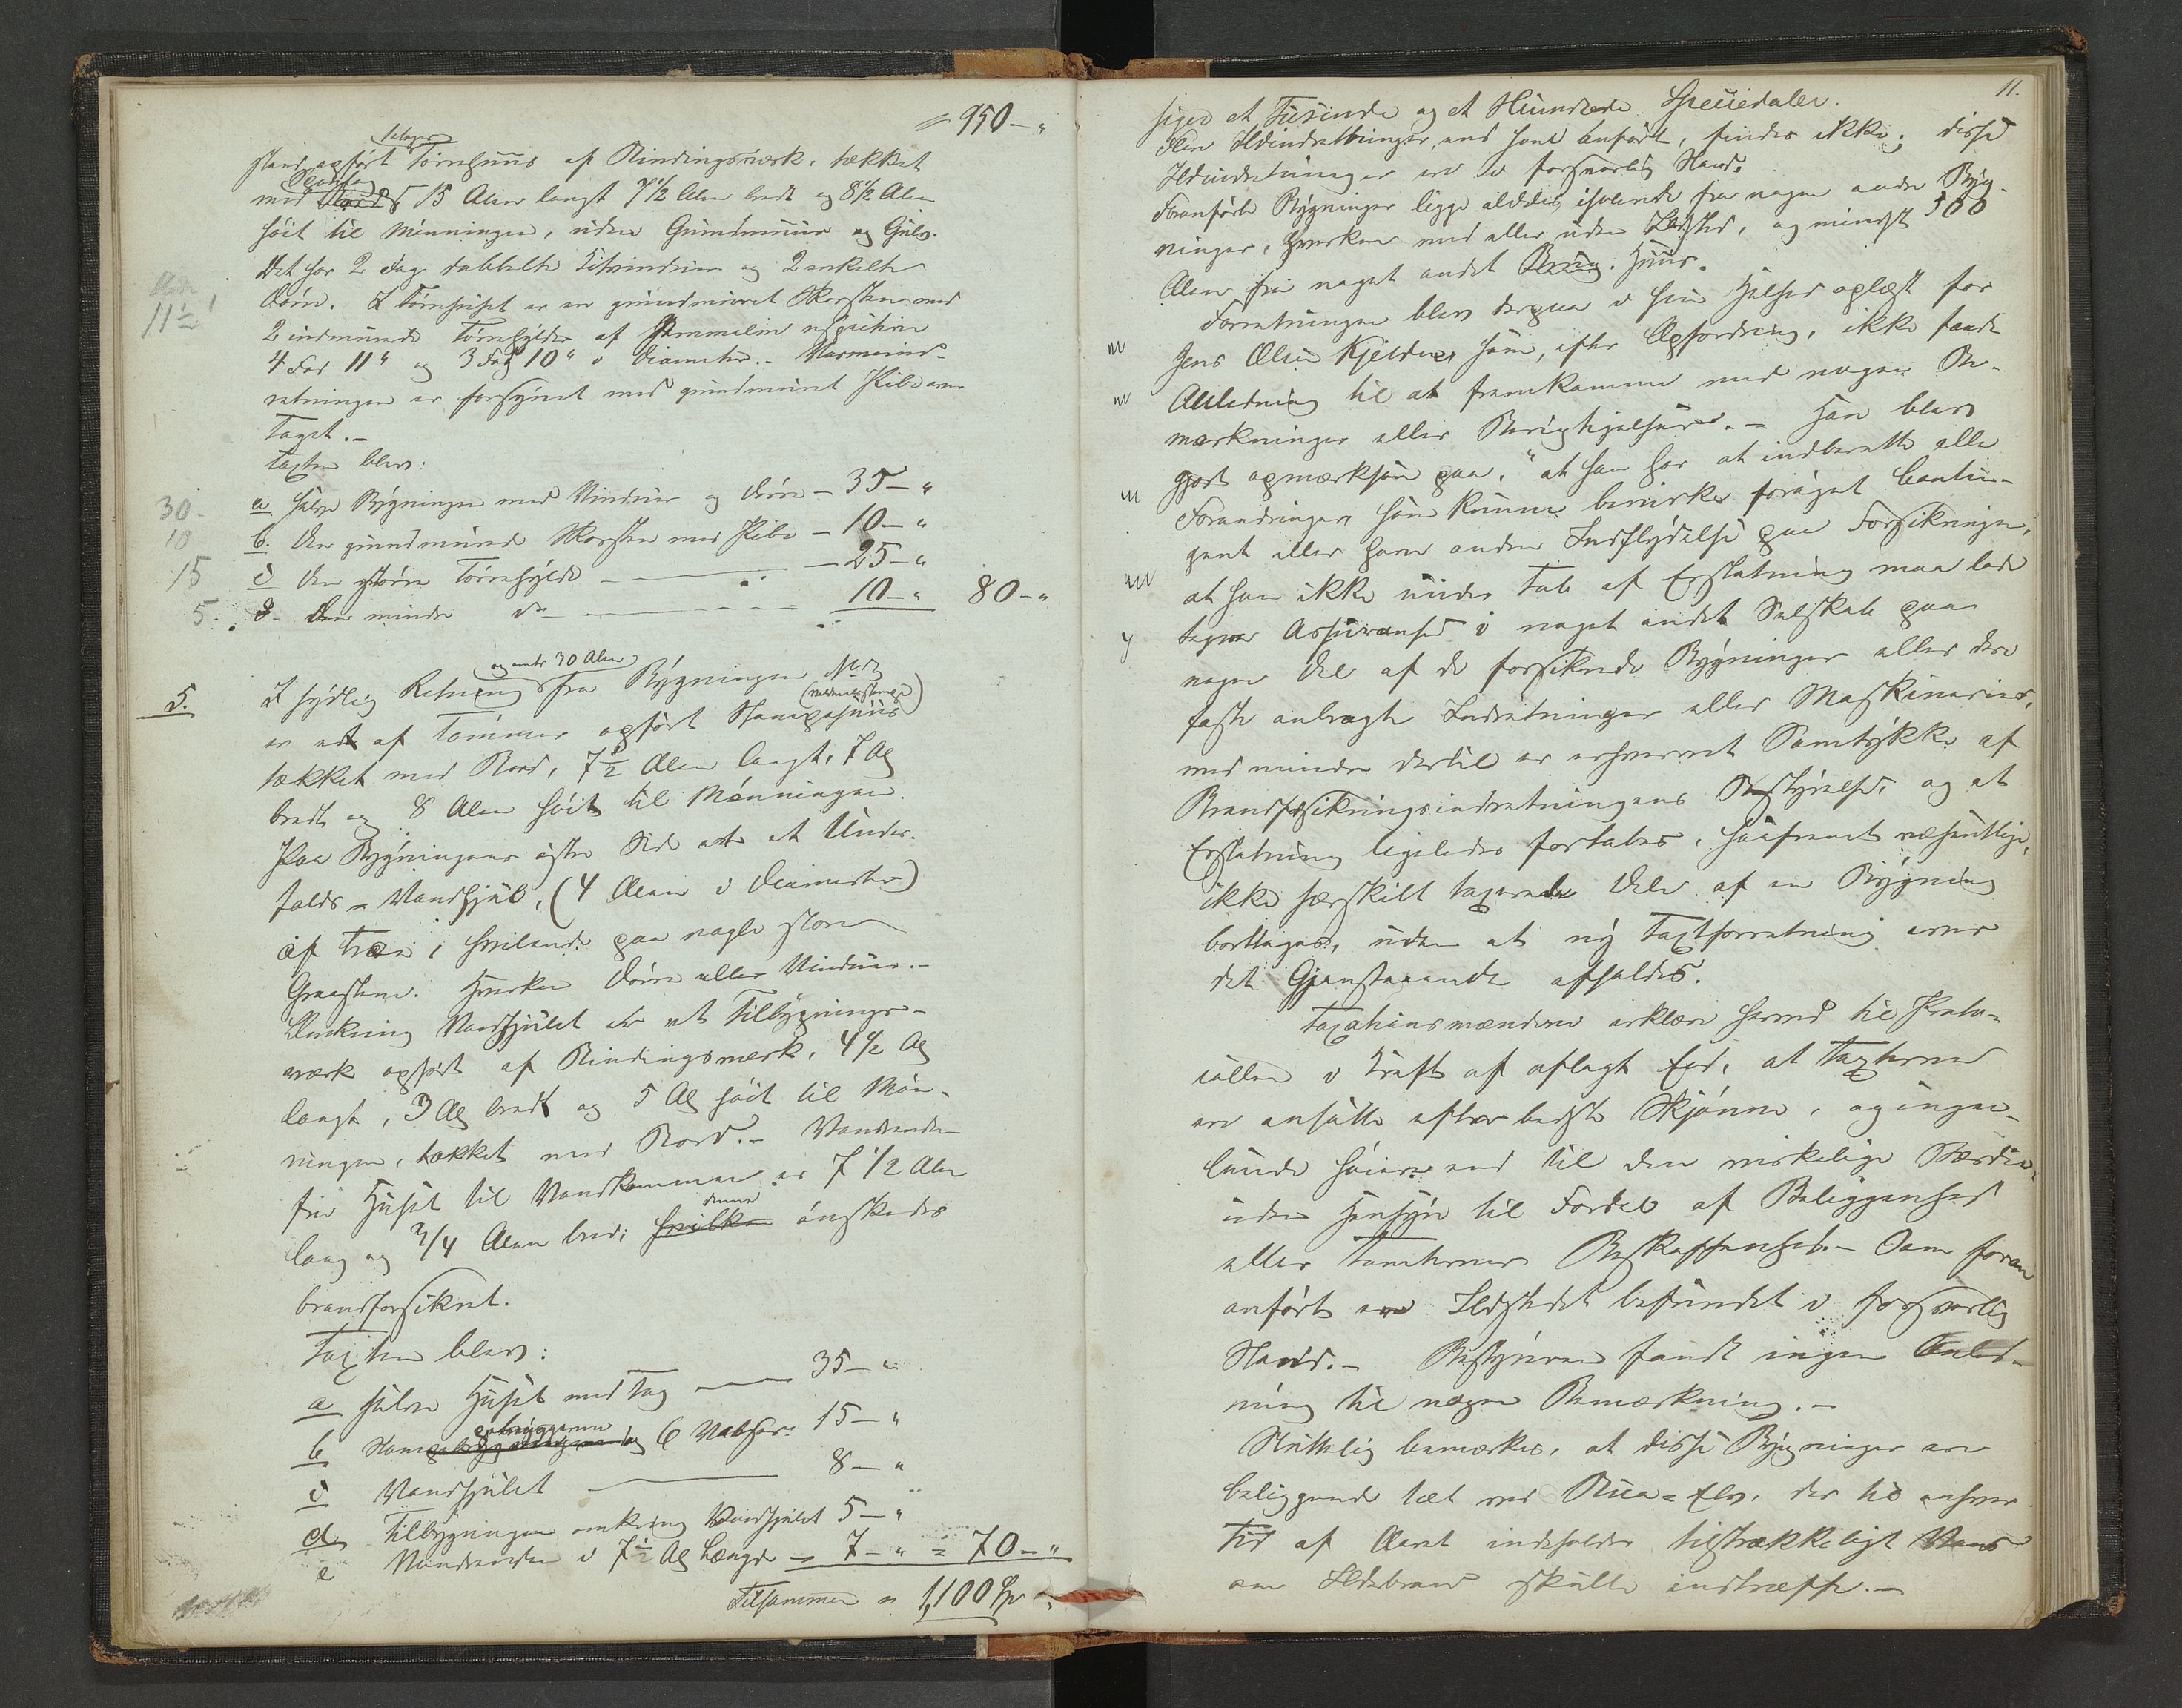 = 950 - "
2etages
stand opført Tørrehuus af Bindingsværk, tækket
med Bord, 15 Alen langt 7 1/2 Alen bredt og 8 1/2 Alen
høit til Mønningen, uden Grundmuur og Gulv.
Det har 2 Fag dobbelte Vinduer og 2 enkelte
Døre. I Tørrehuset er en grundmuret Skorsteen med
2 indmurede Tørrehylder af
4 Fod 11" og 3 Fod 10" i Diameter. - Varmeind-
retningen er forsynet med grundmuret Pibe over
Taget. -
Taxten blev:
a. selve Bygningen med Vinduer og Døre - 35 - "
b. Den grundmurede Skorsteen med Pibe - 10 - "
c Den større Tørrehylde - 25 - "
d. Den mindre do - 10 - " 80 - "
11 1/2
30 -
10
15
5 -
og omtr 30 Alen
5. I sydlig Retning fra Bygningen No 3
er et af Tømmer opført Stampehuus
tækket med Bord, 7 1/2 Alen langt, 7 Al
bredt og 8 Alen høit til Mønningen.
Paa Bygningens østre Side er et Under-
falds-Vandhjul, (4 Alen i Diameter)
af Træ, hvilende paa nogle store
Graasteene. Hverken Døre eller Vinduer. -
Omkring Vandhjulet er et Tilbygnings-
værk opført af Bindingsværk, 4 1/2 Al
langt, 3 Al bredt og 5 Al høit til Møn-
ningen, tækket med Bord. - Vandrenden
fra Huset til Vanddammen er 7 1/2 Alen
lang og 3/4 Alen bred; hvilken denne ønskedes
brandforsikret.
Taxten blev:
a selve Huset med Tag - 35 - "
b Stampe og 15 - "
c Vandhjulet 8 - "
d Tilbygningen omkring Vandhjulet 5 - "
e Vandrenden i 7 1/2 Al Længde - 7 - " = 70 - "
Tilsammen = 1,100 Sp
11.
siger et Tusinde og et Hundrede Speciedaler.
Flere Ildindretninger, end som anført, findes ikke; disse
Ildindretninger ere i forsvarlig Stand.
Foranførte Bygninger ligge aldeles isolerede fra nogen anden Byg-
ninger, hverken med eller uden Ildsted, og mindst 500
Alen fra noget andet Huus.
Forretningen blev derpaa i sin Helhed oplæst for
Jens Olsen Kjeldner som, efter Opfordring, ikke fandt
Anledning til at fremkomme med nogen Be-
mærkninger eller Berigtigelser. - Han blev
gjort opmærksom paa, "at han har at indberette alle
Forandringer, som kunne bevirke forøget Contin-
gent eller have anden Indflydelse paa Forsikringen,
at han ikke under Tab af Erstatning maa lade
tegne Assurance i noget andet Selskab paa
nogen Deel af de forsikrede Bygninger eller deri
faste anbragte Indretninger eller Maskinerier,
med mindre dertil er erhvervet Samtykke af
Brandforsikringsindretningens Bestyrelse, og at
Erstatning ligeledes fortabes, saafremt væsentlige,
ikke særskilt taxerede Dele af en Bygning
borttages, uden at ny Taxtforretning over
det Gjenstaaende afholdes.
Taxationsmændene erklære herved til Proto-
collen i Kraft af aflagt Eed, at Taxterne
ere ansatte efter bedste Skjønne, og ingen-
lunde høiere end til den virkelige Værdie
uden Hensyn til Fordel af Beliggenhed
eller Tomternes Beskaffenhed. - Som foran
anført ere Ildstedet befundet i forsvarlig
Stand. - Bestyreren fandt ingen Anled-
ning til nogen Bemærkning. -
Sluttelig bemærkes, at disse Bygninger ere
beliggende tæt ved Rua-Elv, der til enhver
Tid af Aaret indeholder tilstrækkeligt Vand
om Ildebrand skulle indtræffe. -